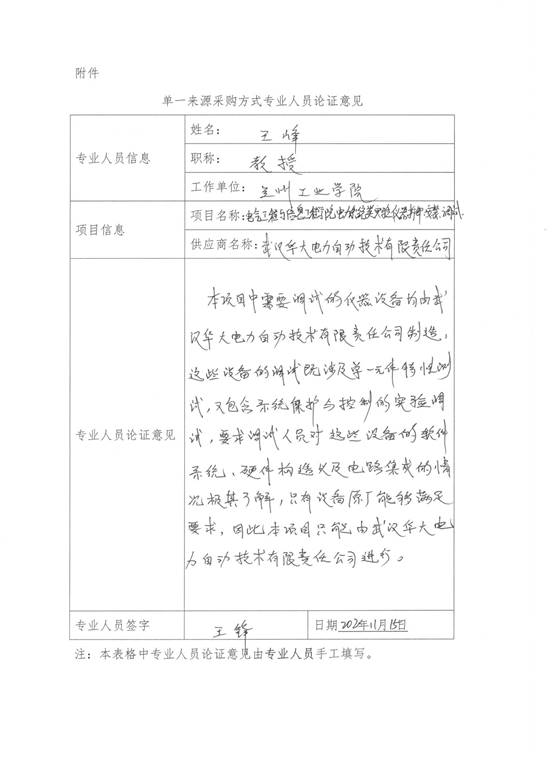 附件
单一来源采购方式专业人员论证意见
专业人员信息
姓名： 王峰
职称： 教授
工作单位： 兰州工业学院
项目信息
项目名称：电气工程与信息工程学院
供应商名称：武汉华大电力自动技术有限责任公司
专业人员论证意见
本项目中需要调试的仪器设备均由武
汉华大电力自动技术有限责任公司制造，
这些设备的调试既涉及单一元件特性测
试，又包含系统保护与控制的实验调
试，要求调试人员对这些设备的软件
系统、硬件构造以及电路集成的情
况极其了解，只有设备原厂能够满足
要求，因此本项目只能由武汉华大电
力自动技术有限责任公司进行。
专业人员签字
王锋
日期
11月15日
注：本表格中专业人员论证意见由专业人员手工填写。